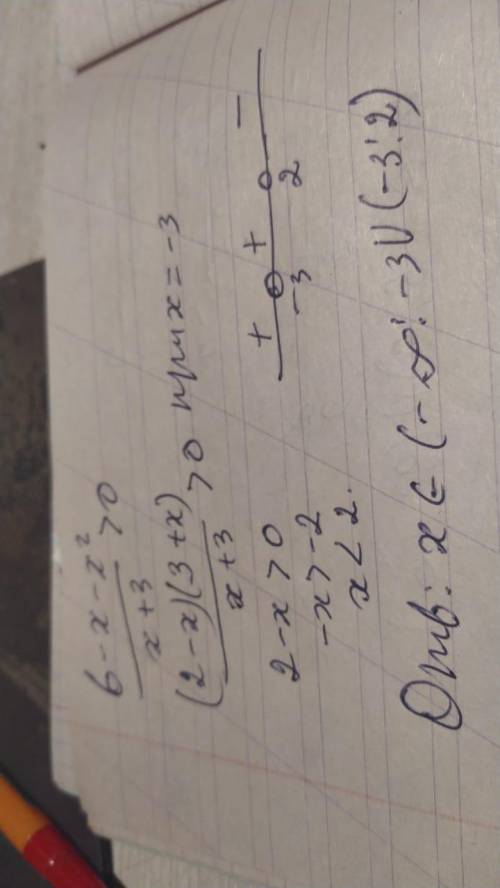 6-x-x²/x+3 >0
(2-x)(3+x)/x+3 >0 при x=-3
2-x>0
-x>-2
x<2.
+ + -
-3 2
Отв: x∈(-∞; -3)∪(-3; 2)